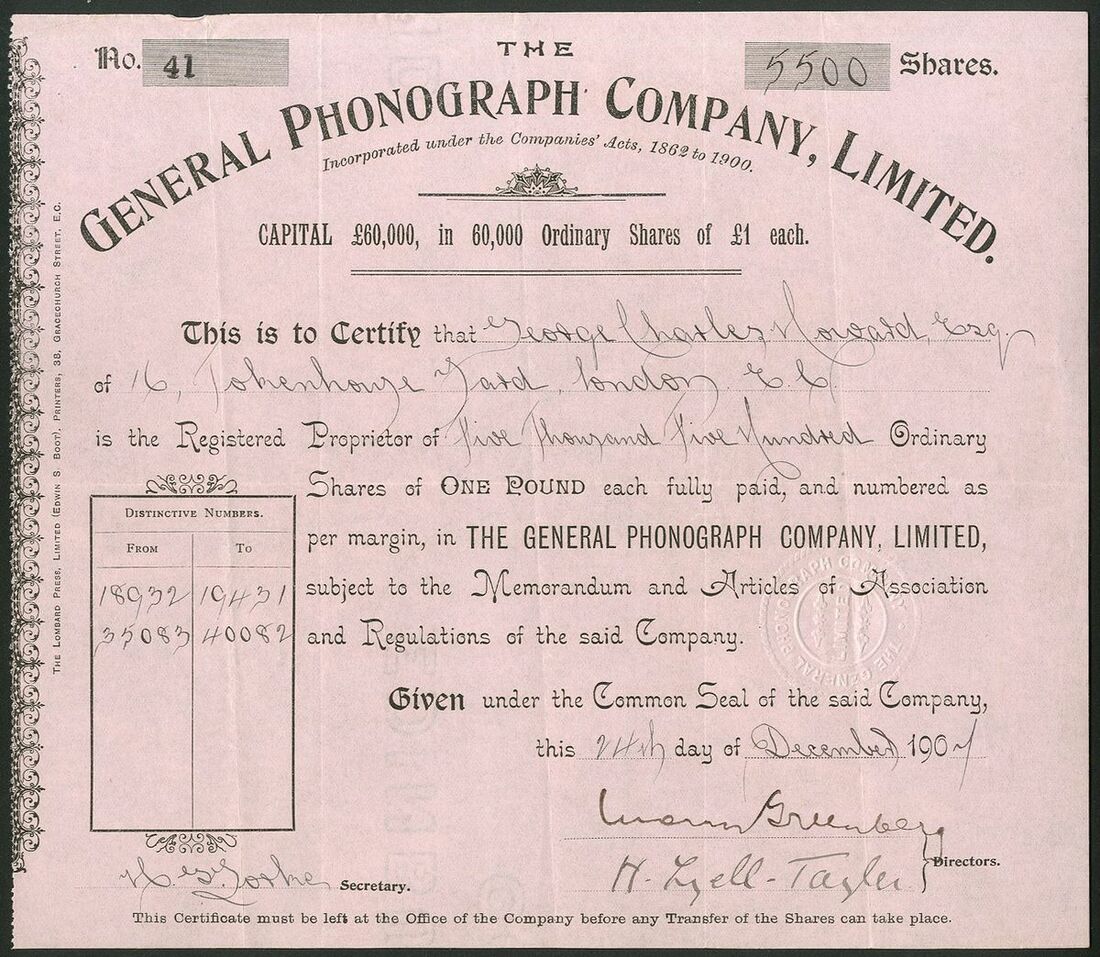 No. 41
5500 Shares.
THE
GENERAL PHONOGRAPH COMPANY, LIMITED.
Incorporated under the Companies' Acts, 1862 to 1900.
CAPITAL £60,000, in 60,000 Ordinary Shares of £1 each.
This is to Certify that George Charles Howard, Esq.
of 16, Tokenhouse Yard, London E.C.
is the Registered Proprietor of Five Thousand Five Hundred Ordinary
Shares of ONE POUND each fully paid, and numbered as
per margin, in THE GENERAL PHONOGRAPH COMPANY, LIMITED,
subject to the Memorandum and Articles of Association
and Regulations of the said Company.
DISTINCTIVE NUMBERS.
FROM TO
18932 19431
35083 40082
Given under the Common Seal of the said Company,
this 24th day of December 1907
Greenberg
H. Lyell-Tayler
Directors.
Secretary.
This Certificate must be left at the Office of the Company before any Transfer of the Shares can take place.
THE LOMBARD PRESS, LIMITED (EDWIN S BOOT), PRINTERS, 38, GRACECHURCH STREET, E.C.
THE GENERAL PHONOGRAPH COMPANY
LIMITED